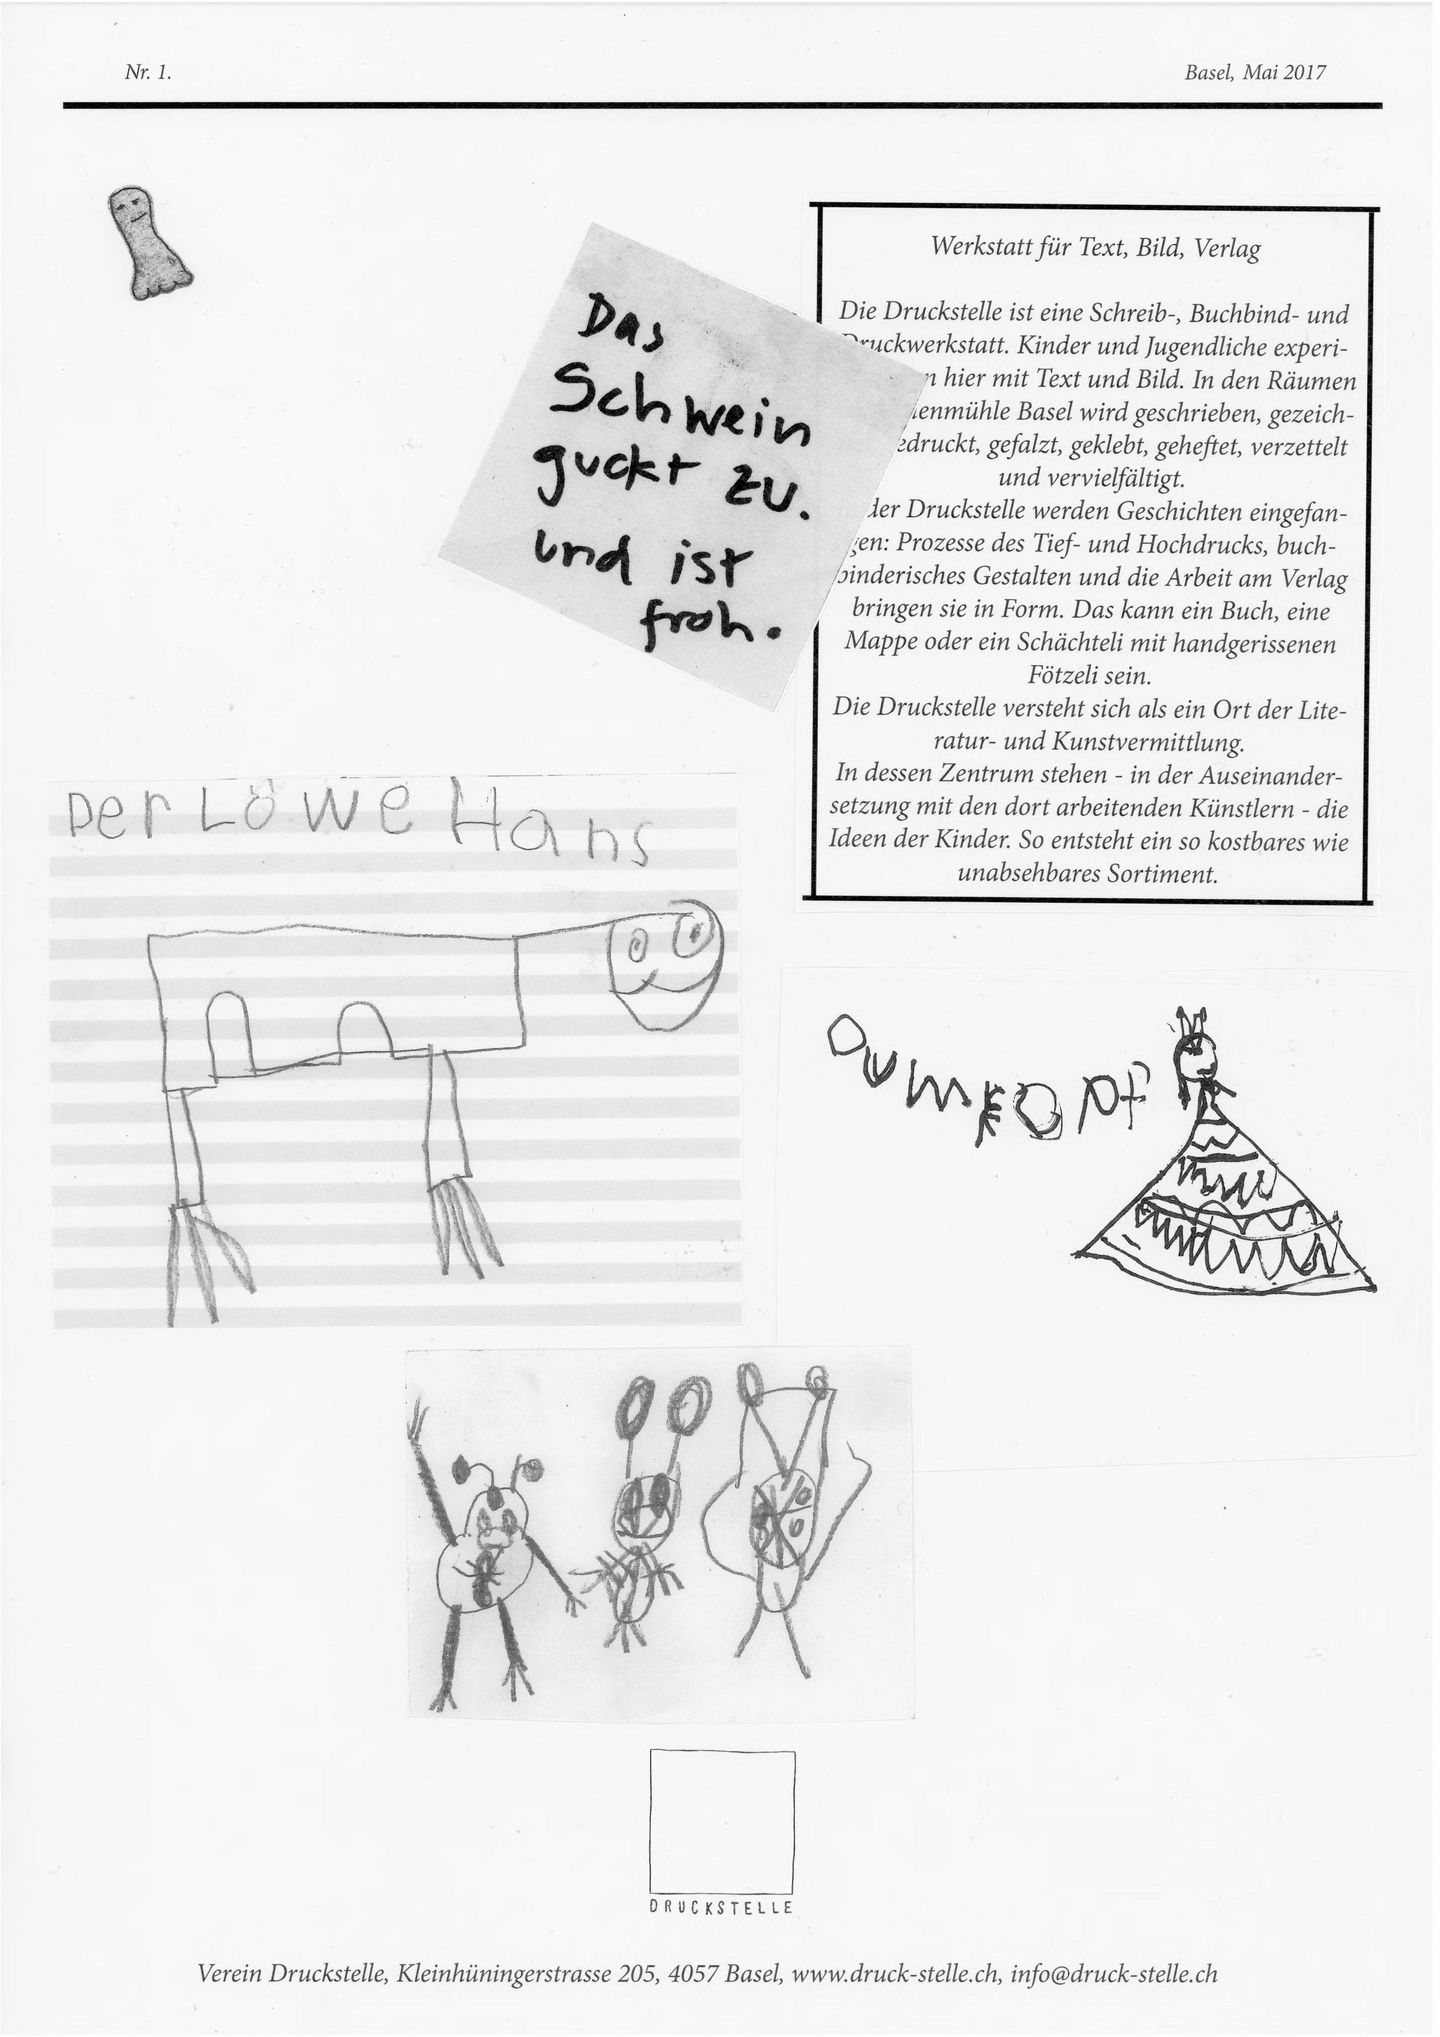 Nr. 1.
Basel, Mai 2017
Das
Schwein
guckt zu.
und ist
froh.
Werkstatt für Text, Bild, Verlag
Die Druckstelle ist eine Schreib-, Buchbind- und
Druckwerkstatt. Kinder und Jugendliche experi-
hier mit Text und Bild. In den Räumen
Basel wird geschrieben, gezeich-
gefalzt, geklebt, geheftet, verzettelt
und vervielfältigt.
der Druckstelle werden Geschichten eingefan-
gen: Prozesse des Tief- und Hochdrucks, buch-
binderisches Gestalten und die Arbeit am Verlag
bringen sie in Form. Das kann ein Buch, eine
Mappe oder ein Schächteli mit handgerissenen
Fötzeli sein.
Die Druckstelle versteht sich als ein Ort der Lite-
ratur- und Kunstvermittlung.
In dessen Zentrum stehen - in der Auseinander-
setzung mit den dort arbeitenden Künstlern - die
Ideen der Kinder. So entsteht ein so kostbares wie
unabsehbares Sortiment.
Der LöWe Hans
DumKopf
DRUCKSTELLE
Verein Druckstelle, Kleinhüningerstrasse 205, 4057 Basel, www.druck-stelle.ch, info@druck-stelle.ch